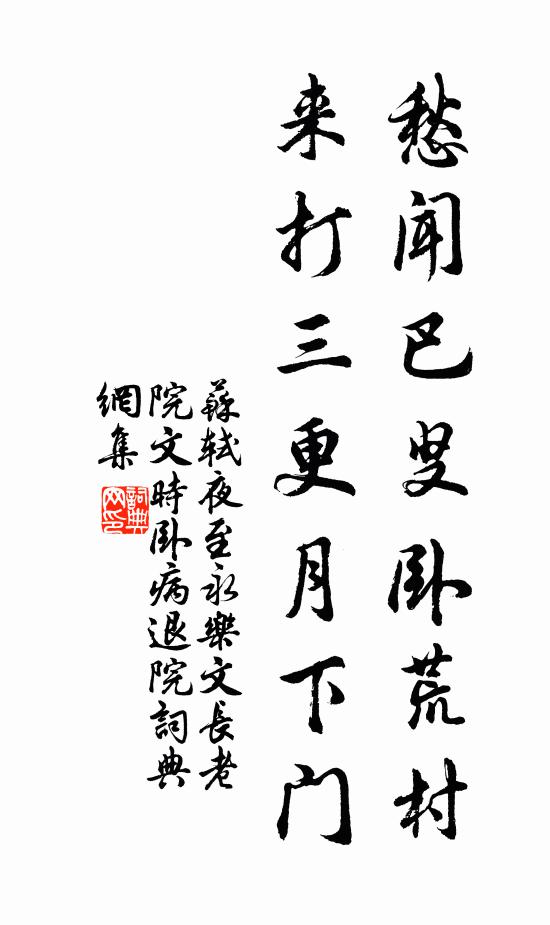 愁闻巴叟卧荒村
来打三更月下门
蘇軾夜至永樂文長老
院文時卧病退院詞典
網集
詞典网印